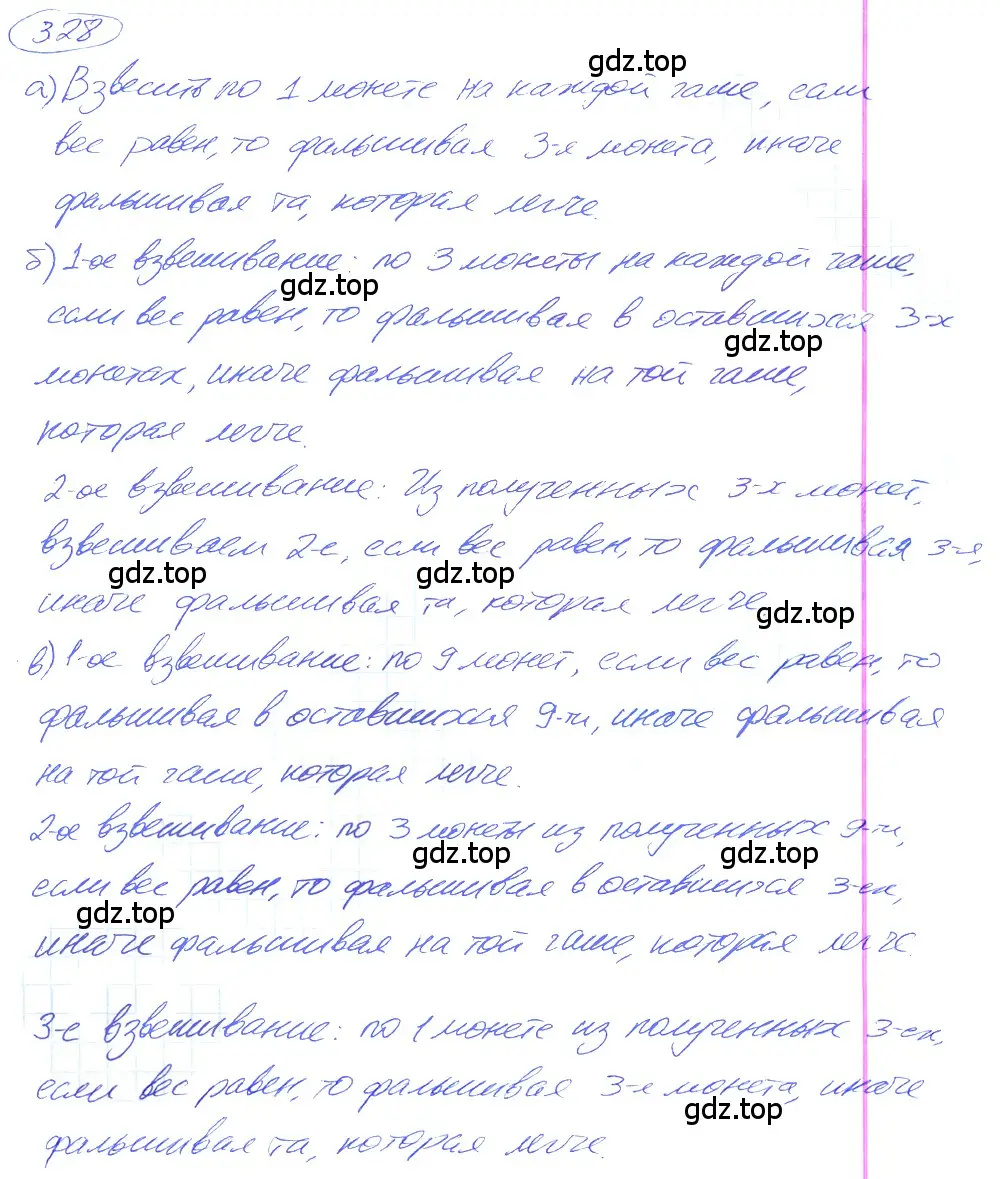 328
gdz.top
а) Взвесить по 1 монете на каждой чаше, если
вес равен, то фальшивая 3-я монета, иначе
фальшивая та, которая легче.
б) 1-ое взвешивание: по 3 монеты на каждой чаше,
gdz.top
если вес равен, то фальшивая в оставшихся 3-х
gdz.top
монетах, иначе фальшивая на той чаше,
которая легче.
2-ое взвешивание: Из полученных 3-х монет,
взвешиваем 2-е, если вес равен, то фальшивая 3-я,
gdz.top gdz.top
иначе фальшивая та, которая легче
gdz.top
в) 1-ое взвешивание: по 9 монет, если вес равен, то
фальшивая в оставшихся 9-ти, иначе фальшивая
на той чаше, которая легче.
2-ое взвешивание: по 3 монеты из полученных 9-ти,
gdz.top gdz.top
если вес равен, то фальшивая в оставшихся 3-ех,
gdz.top
иначе фальшивая на той чаше, которая легче.
3-е взвешивание: по 1 монете из полученных 3-ех,
если вес равен, то фальшивая 3-я монета, иначе
gdz.top
фальшивая та, которая легче.